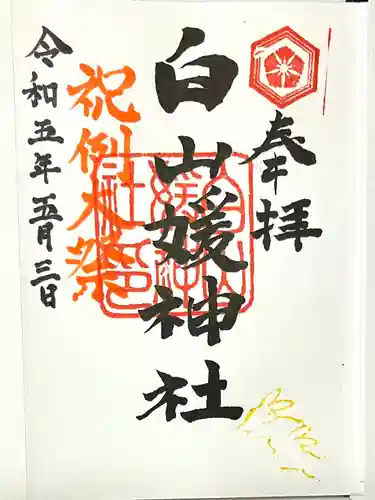 奉拝
白山媛神社
祝例大祭
令和五年五月三日